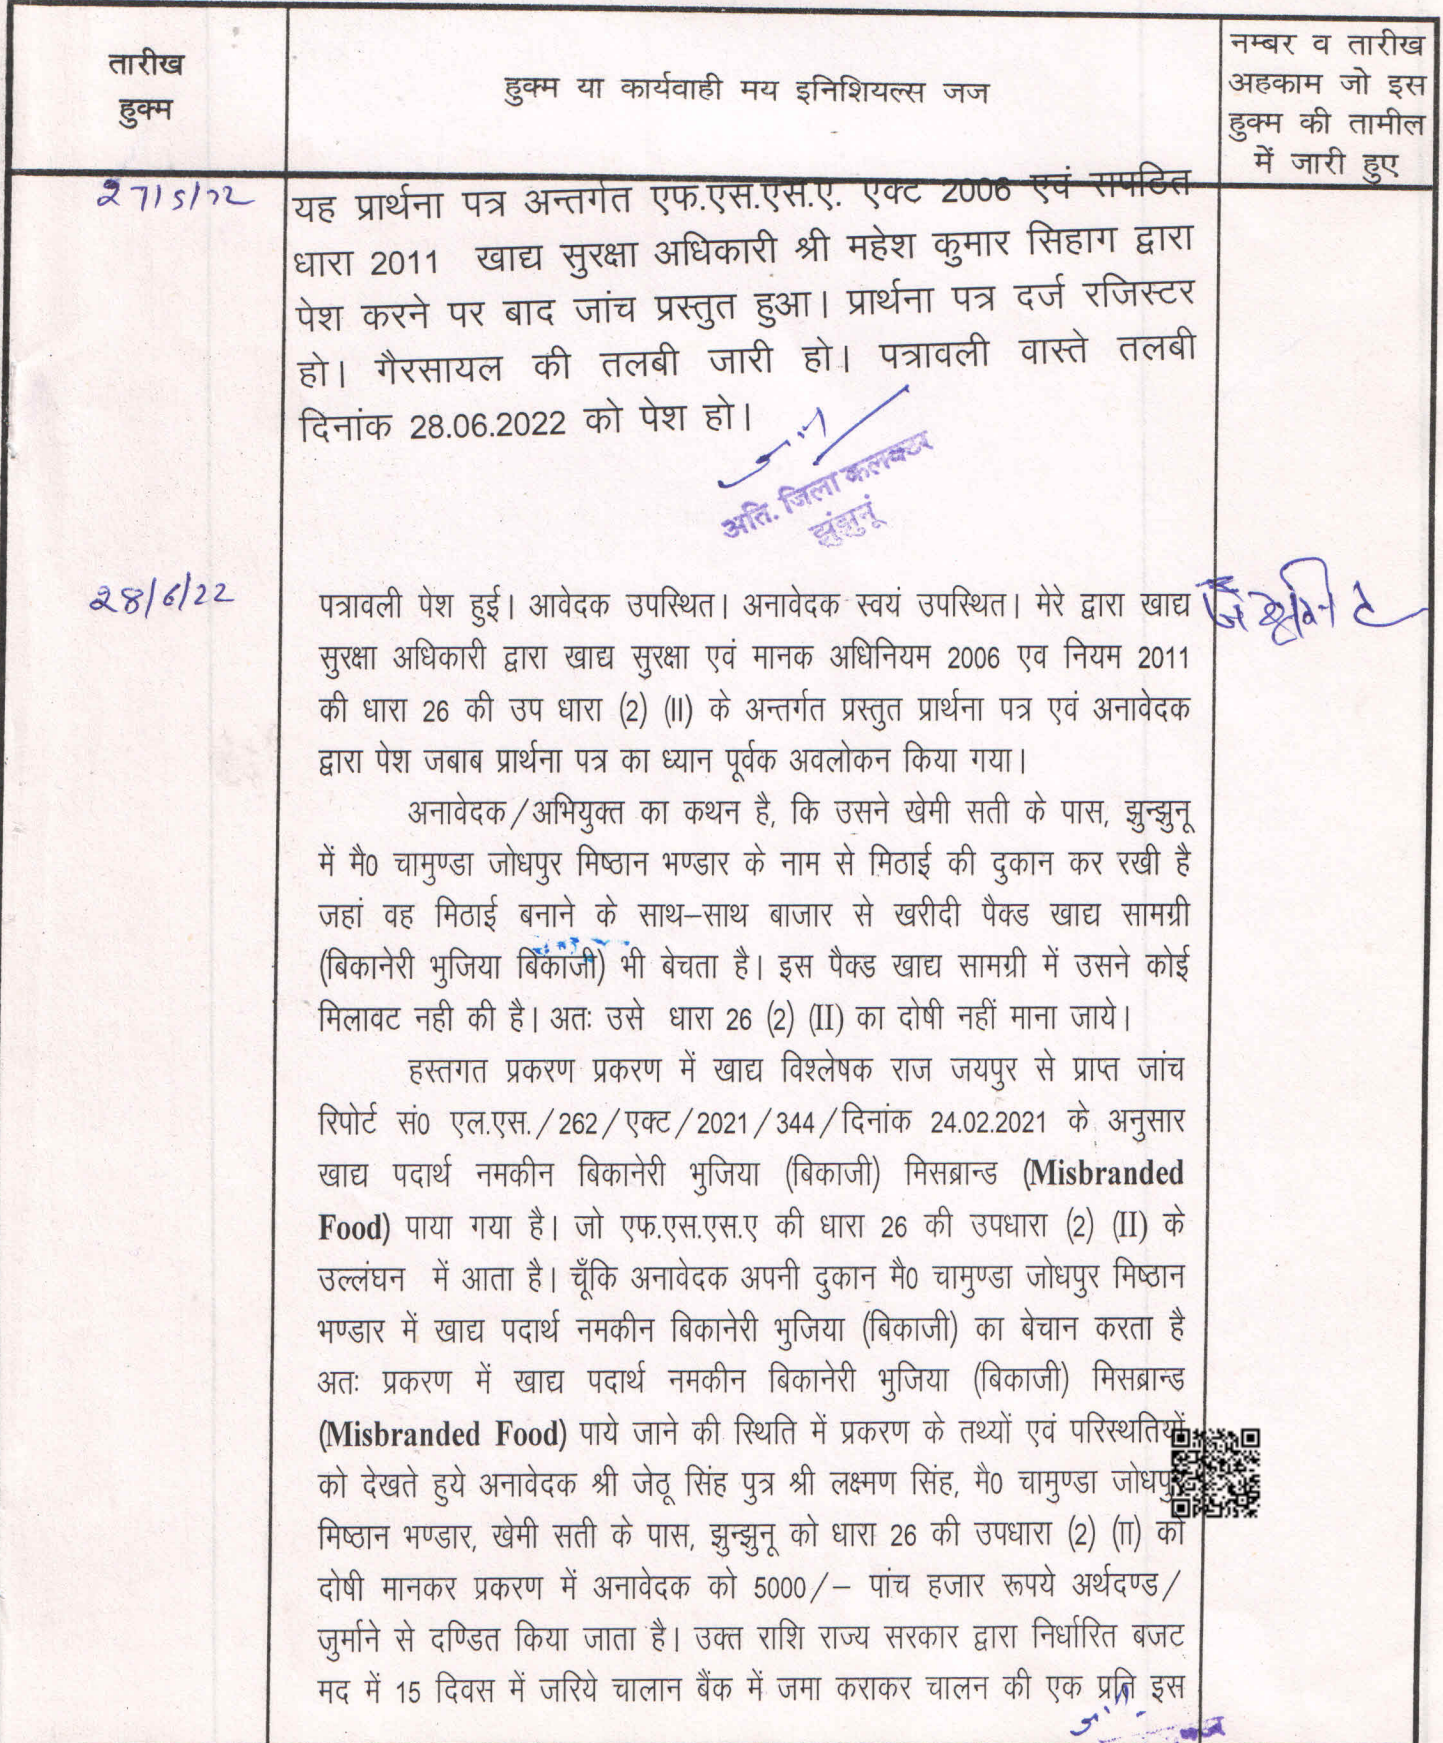 तारीख
हुक्म
हुक्म या कार्यवाही मय इनिशियल्स जज
नम्बर व तारीख
अहकाम जो इस
हुक्म की तामील
में जारी हुए
27/5/22
यह प्रार्थना पत्र अन्तर्गत एफ.एस.एस.ए. एक्ट 2006 एवं सपठित
धारा 2011 खाद्य सुरक्षा अधिकारी श्री महेश कुमार सिहाग द्वारा
पेश करने पर बाद जांच प्रस्तुत हुआ। प्रार्थना पत्र दर्ज रजिस्टर
हो। गैरसायल की तलबी जारी हो। पत्रावली वास्ते तलबी
दिनांक 28.06.2022 को पेश हो।
अति. जिला कलक्टर
झुंझुनूं
28/6/22
पत्रावली पेश हुई। आवेदक उपस्थित। अनावेदक स्वयं उपस्थित। मेरे द्वारा खाद्य
सुरक्षा अधिकारी द्वारा खाद्य सुरक्षा एवं मानक अधिनियम 2006 एव नियम 2011
की धारा 26 की उप धारा (2) (II) के अन्तर्गत प्रस्तुत प्रार्थना पत्र एवं अनावेदक
द्वारा पेश जबाब प्रार्थना पत्र का ध्यान पूर्वक अवलोकन किया गया।
अनावेदक/अभियुक्त का कथन है, कि उसने खेमी सती के पास, झुन्झुनू
में मै0 चामुण्डा जोधपुर मिष्ठान भण्डार के नाम से मिठाई की दुकान कर रखी है
जहां वह मिठाई बनाने के साथ–साथ बाजार से खरीदी पैक्ड खाद्य सामग्री
(बिकानेरी भुजिया बिकाजी) भी बेचता है। इस पैक्ड खाद्य सामग्री में उसने कोई
मिलावट नही की है। अतः उसे धारा 26 (2) (II) का दोषी नहीं माना जाये।
हस्तगत प्रकरण प्रकरण में खाद्य विश्लेषक राज जयपुर से प्राप्त जांच
रिपोर्ट सं0 एल.एस./262/एक्ट/2021/344/दिनांक 24.02.2021 के अनुसार
खाद्य पदार्थ नमकीन बिकानेरी भुजिया (बिकाजी) मिसब्रान्ड (Misbranded
Food) पाया गया है। जो एफ.एस.एस.ए की धारा 26 की उपधारा (2) (II) के
उल्लंघन में आता है। चूँकि अनावेदक अपनी दुकान मै0 चामुण्डा जोधपुर मिष्ठान
भण्डार में खाद्य पदार्थ नमकीन बिकानेरी भुजिया (बिकाजी) का बेचान करता है
अतः प्रकरण में खाद्य पदार्थ नमकीन बिकानेरी भुजिया (बिकाजी) मिसब्रान्ड
(Misbranded Food) पाये जाने की स्थिति में प्रकरण के तथ्यों एवं परिस्थतियों
को देखते हुये अनावेदक श्री जेठू सिंह पुत्र श्री लक्ष्मण सिंह, मै0 चामुण्डा जोधपुर
मिष्ठान भण्डार, खेमी सती के पास, झुन्झुनू को धारा 26 की उपधारा (2) (II) को
दोषी मानकर प्रकरण में अनावेदक को 5000/– पांच हजार रूपये अर्थदण्ड/
जुर्माने से दण्डित किया जाता है। उक्त राशि राज्य सरकार द्वारा निर्धारित बजट
मद में 15 दिवस में जरिये चालान बैंक में जमा कराकर चालन की एक प्रति इस